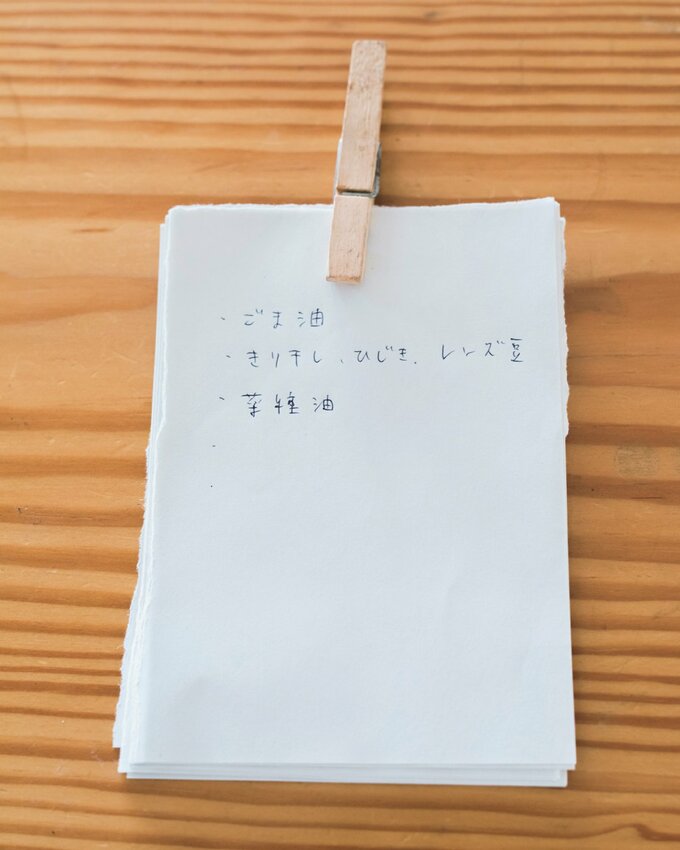 ・ごま油
・きり干し、ひじき、レンズ豆
・菜種油
・
・